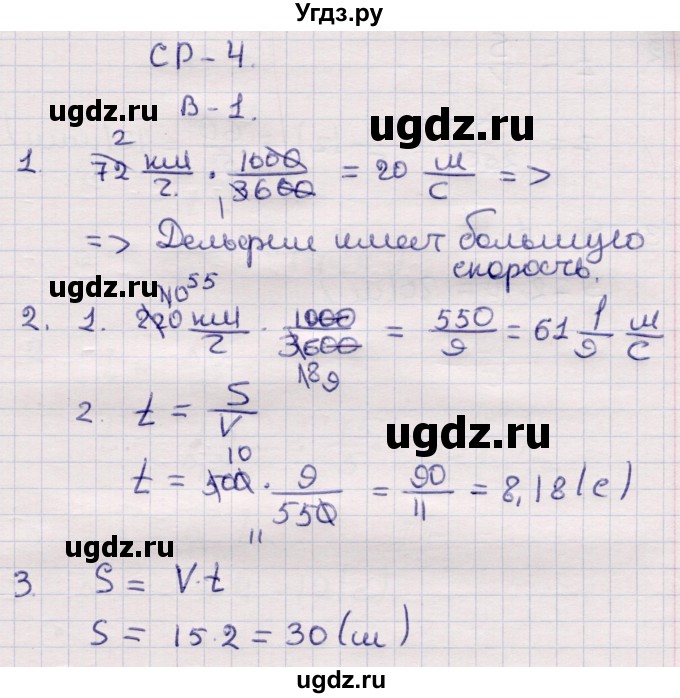 Угдз.ру
СР - 4.
ugdz.ru
В - 1.
ugdz.ru
1. 72 км/г. · 1000/3600 = 20 м/с =>
2
1
=> Дельфин имеет большую
скорость.
ugdz.ru
110 55
2. 1. 220 км/г · 1000/3600 = 550/9 = 61 1/9 м/с
18 9
2. t = S/V
ugdz.ru
10
t = 500 · 9/550 = 90/11 = 8,18 (с)
11
ugdz.ru
3 S = V·t
ugdz.ru
S = 15·2 = 30 (м)
ugdz.ru